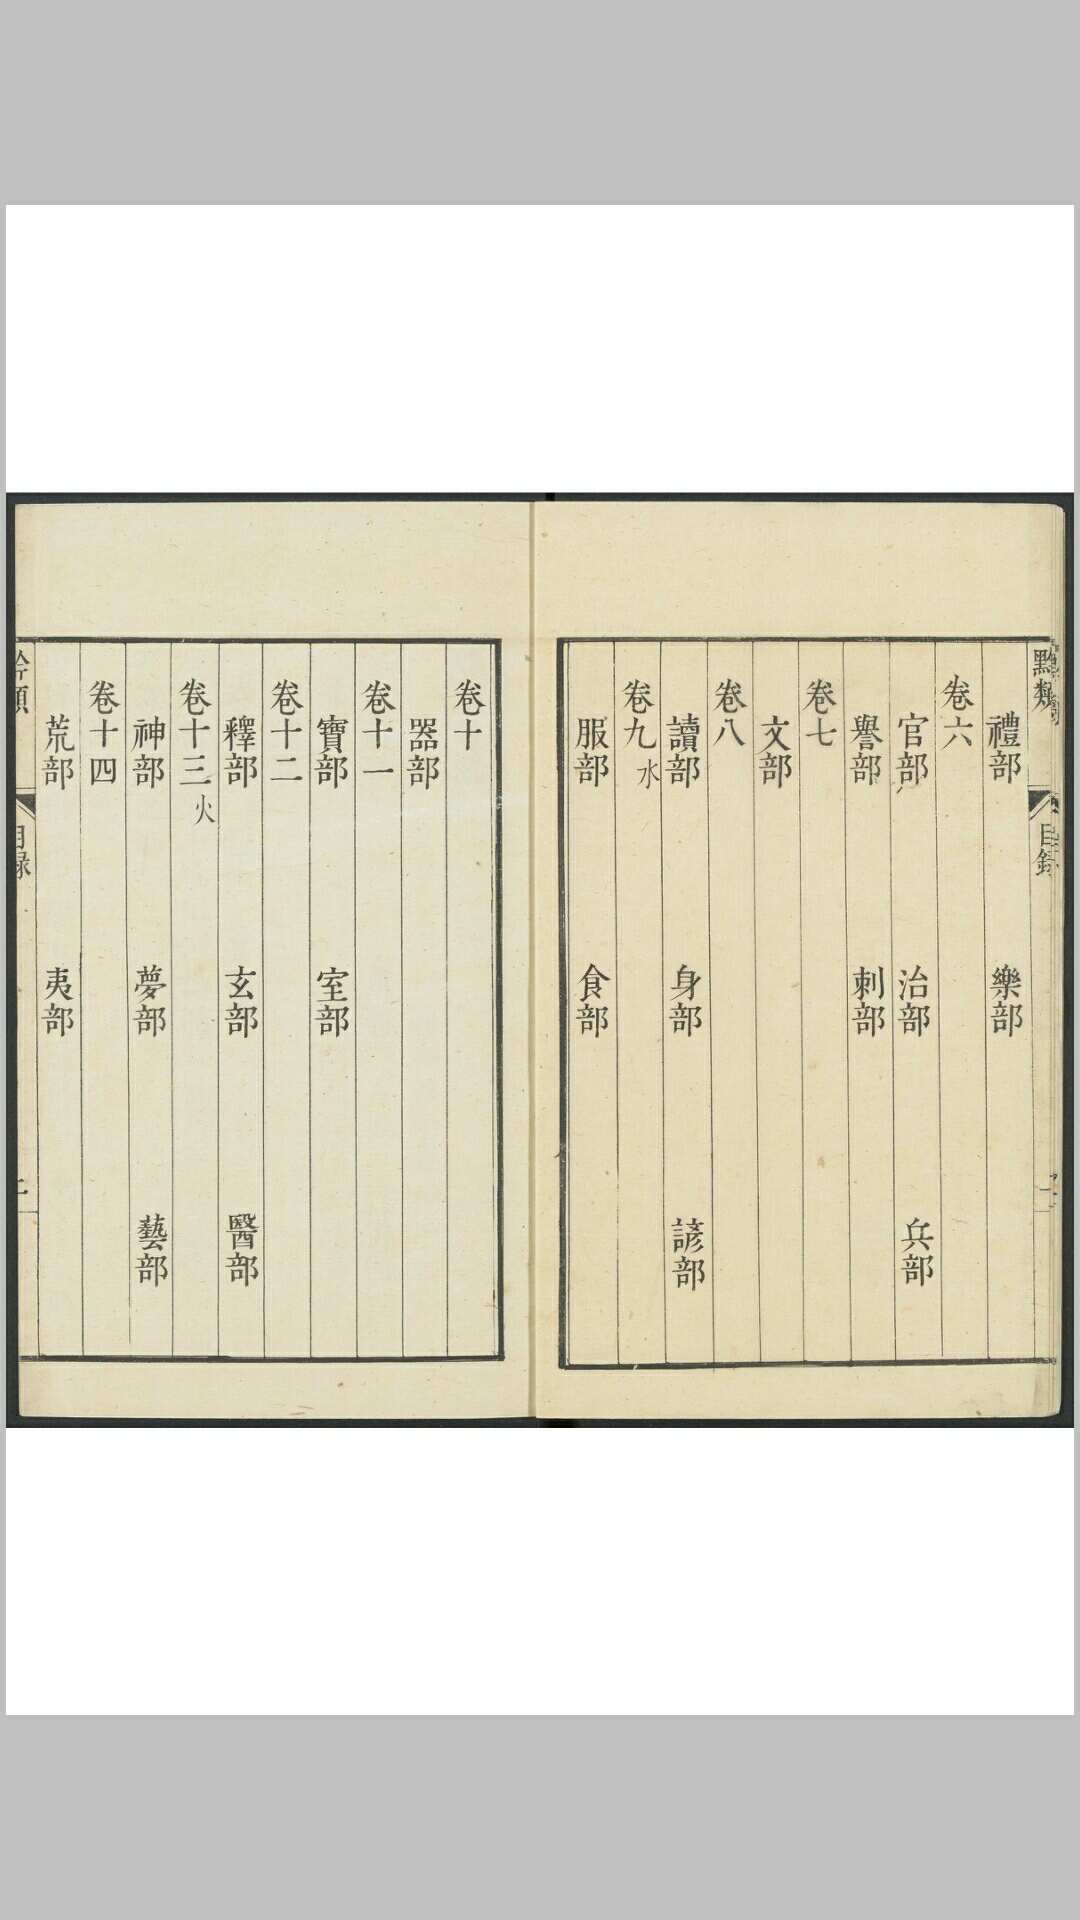 黔類
目錄
禮部 樂部
卷六
官部 治部 兵部
譽部 刺部
卷七
文部
卷八
讀部 身部 諺部
卷九 水
服部 食部
卷十
器部
卷十一
寶部 室部
卷十二
釋部 玄部 醫部
卷十三 火
神部 夢部 藝部
卷十四
荒部 夷部
目錄